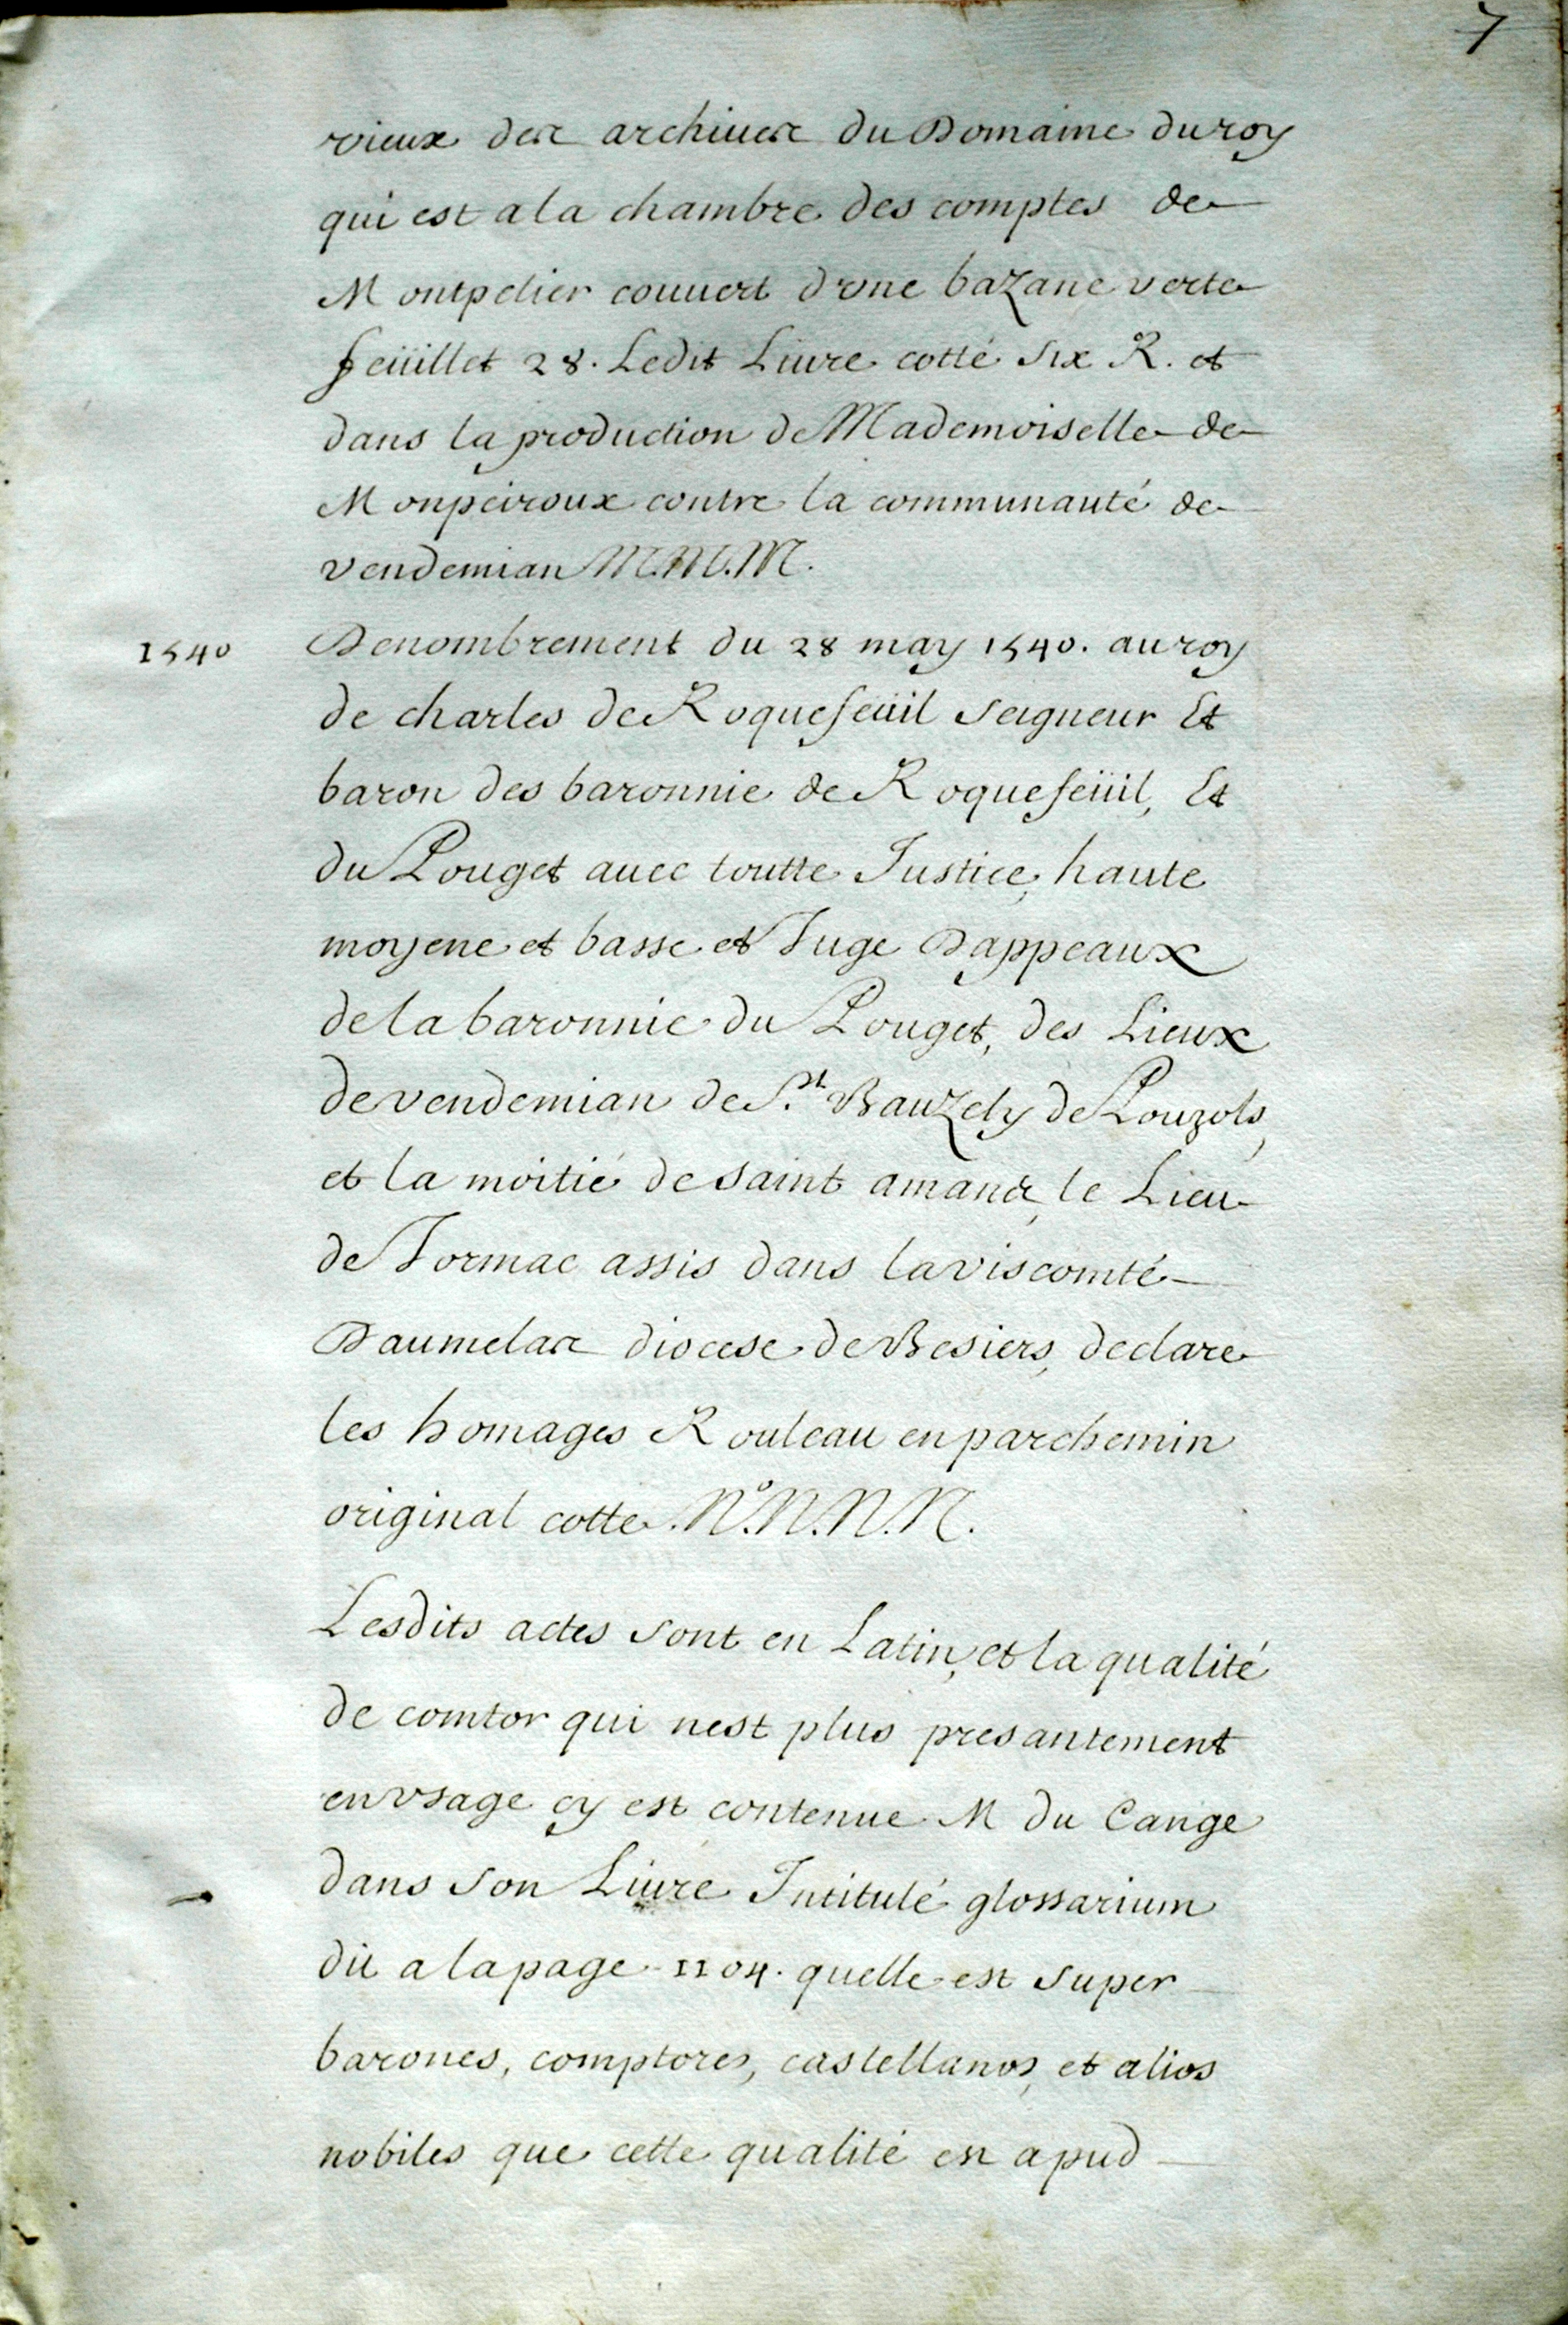 7
vieux des archiues du Domaine du roy
qui est a la chambre des comptes de
Montpelier couuert d'vne bazane verte
feüillet 28. Ledit Liure cotté six R. et
dans la production de Mademoiselle de
Monpeiroux contre la communauté de
vendemian M.M.M.
1540
Denombrement du 28 may 1540. au roy
de charles de Roquefeüil seigneur Et
baron des baronnie de Roquefeüil, Et
du Pouget auec toutte Justice, haute
moyene et basse et Juge Dappeaux
de la baronnie du Pouget, des Lieux
de vendemian de S.t Bauzely de Pouzols,
et la moitié de saint amans, le Lieu
de Tormac assis dans la viscomté
Daumelas diocese de Besiers, declare
les homages Rouleau en parchemin
original cotte N.o N.N.N.
Lesdits actes sont en Latin, et la qualité
de comtor qui nest plus presantement
en vsage cy est contenue M du Cange
dans son Liure Intitulé glossarium
dit a la page 1104. quelle est super
barones, comptores, castellanos, et alios
nobiles que cette qualité est apud